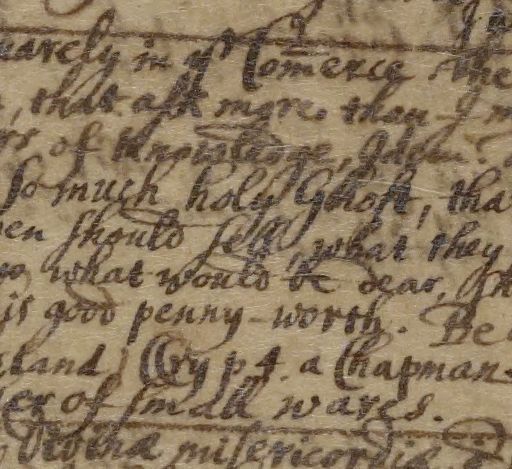 uarely in yr Com̄erce the
, that ask more than
of knowledge,
so much holy Ghost, tha
en should sell, what they
what would be dear,
is good penny-worth. Be
land, p 4. a Chapman
er of small wares.
misericordiæ